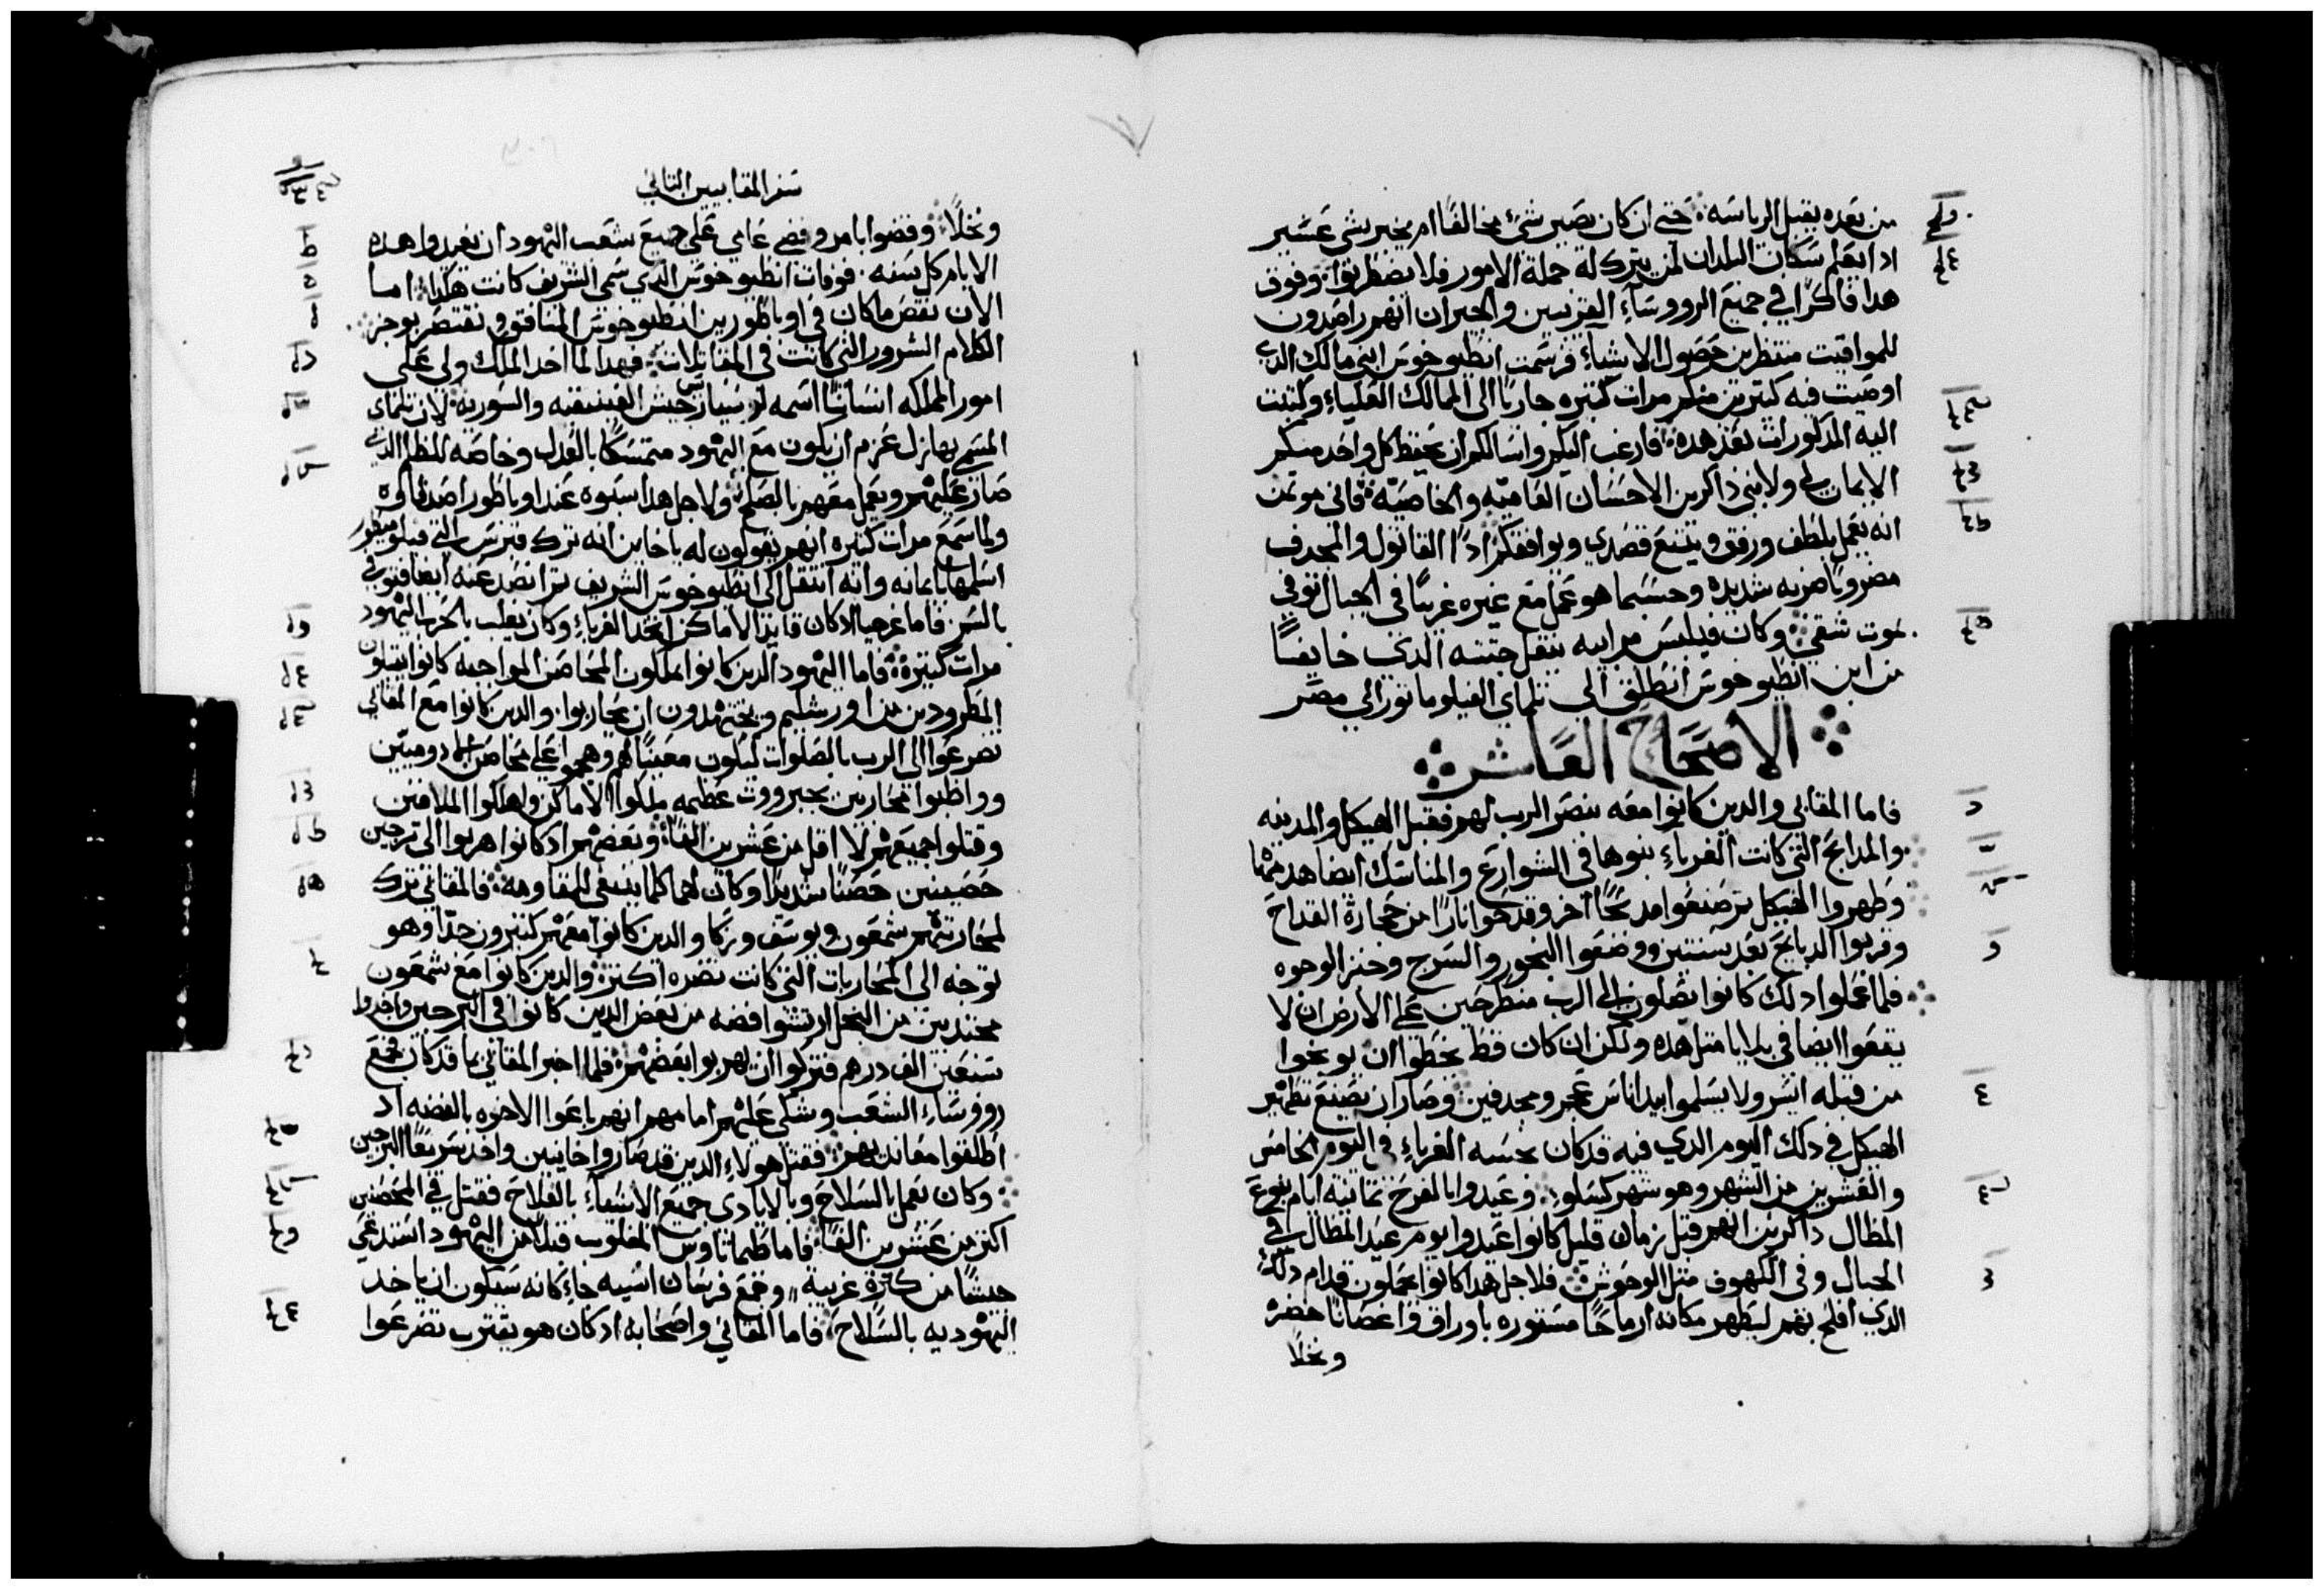 من بعده يقبل الرياسه حتي ان كان يصير شئ مخالفًا ام يخبر بشي عسير
اذا يعلم سكان البلدان لمن يترك له جملة الامور فلا يضطربوا وفوق
هدا فاكرًا في جميع الرووساء القريبين والجيران انهم راصدون
للمواقيت منتظرين حصول الاشياء فرسمت انطيوخوس ابني مالك الدي
اوصيت فيه كتيرين منكم مرات كتيره جاريًا الي الممالك العلياء وكتبت
اليه المدكورات بعد هده فارغب اليكم واسالكم ان يحفظ كل واحد منكم
الايمان لي ولابني داكرين الاحسان العاميه والخاصيه فاني موتمن
انه يعمل بلطف ورفق ويتبع قصدي ويوافقكم ادًا القاتول والمجدف
مضروبًا ضربه شديده وحسبما هو عمل مع غيره غريبًا في الجبال توفي
بموت شقي وكان فيلبس مرابيه ينقل جتته الدي خايفًا
من ابن انطيوخوس انطلق الي تلماي الفيلوماتور الي مصر
الاصحاح العاشر
فاما المقابي والدين كانوا معه بنصر الرب لهم فقبل الهيكل والمدينه
والمدابح التي كانت الغرباء بنوها في الشوارع والمناسك ايضا هدمها
وطهروا الهيكل تم صنعوا مدبحًا آخر وقدحوا نارًا من حجارة القداح
وقربوا الدبايح بعد سنتين ووضعوا البخور والسرج وخبز الوجوه
فلما عملوا دلك كانوا يصلون الي الرب منطرحين علي الارض ان لا
يقعوا ايضا في بلايا متل هده ولكن ان كان قط يخطوا ان يوبخوا
من قبله ايسر ولا يسلموا بيد اناس عجم ومجدفين وصار ان يصنع تطهير
الهيكل في دلك اليوم الدي فيه قد كان نجسه الغرباء في اليوم الخامس
والعشرين من الشهر وهو شهر كسلو وعيدوا بالفرح تمانية ايام بنوع
المظال داكرين انهم قبل زمان قليل كانوا عيدوا يوم عيد المظال في
الجبال وفي الكهوف متل الوحوش فلاجل هدا كانوا يحملون قدام دلك
الدي افلح بهم ليطهر مكانه ارماحًا مستوره باوراق واغصانًا خضره
ونخلا
سفر المقابيين التاني
ونخلًا وقضوا بامر وقضي عامي علي جميع شعب اليهود ان يعيدوا هده
الايام كل سنه فوفات انطيوخوس الدي سمي الشريف كانت هكدا اما
الان نقص ما كان في اوباطور بن انطيوخوس المنافق ونقتصر بوجز
الكلام الشرور التي كانت في المقاتلات فهدا لما اخد الملك ولي علي
امور المملكه انسانًا اسمه لوسياس جيش الفنيقيه والسوريه لان تلماي
المسمي بهازل عزم ان يكون مع اليهود متمسكًا بالعدل وخاصه للظلم الدي
صار عليهم ويعمل معهم بالصلح ولاجل هدا سبوه عند اوباطور اصدقاوه
ولما سمع مرات كتيره انهم يقولون له يا خاين انه ترك قبرس التي فيلوميطور
اسلمها بايمانه وانه انتقل الي انطيوخوس الشريف تم انصد عنه ايضا فتوفي
بالسم فاما غرجيا لا كان قايد الاماكن اتخد الغرباء وكان يغلب بالحرب اليهود
مرات كتيره فاما اليهود الدين كانوا يملكون المحاصن الواجبه كانوا يقبلون
المطرودين من اورشليم ويجتهدون ان يحاربوا والدين كانوا مع المقابي
تضرعوا الي الرب بالصلوات ليكون معينًا لهم وهجموا علي محاصن الادوميين
وواظبوا محاربين بجبرووت عظيمه ملكوا الاماكن واهلكوا الملاقين
وقتلوا جميعهم لا اقل من عشرين الفًا وبعضهم اد كانوا هربوا الي برجين
حصينين حصنًا شديدًا وكان لهما كلما ينبغي للمقاومه فالمقابي ترك
لمحاربتهم شمعون ويوسف وزكا والدين كانوا معهم كتيرون جدًا وهو
توجه الي المحاربات التي كانت تضره اكتر والدين كانوا مع شمعون
مجتدبين من البخل ارتشوا فضه من بعض الدين كانوا في البرجين واخدوا
سبعين الف درهم فتركوا ان يهربوا بعضهم فلما اخبر المقابي بما قد كان جمع
رووساء الشعب وشكي عليهم امامهم انهم باعوا الاخوه بالفضه اد
اطلقوا معانديهم فقتل هولاء الدين قد صاروا خاينين واخد سريعًا البرجين
وكان يعمل بالسلاح وبالايادي جميع الاشياء بالفلاح فقتل في المحصنين
اكتر من عشرين الفًا فاما طيماتاوس المغلوب قبلا من اليهود استدعي
جيشًا من كترة غربية وجمع فرسان اسيه جاء كانه سيكون ان ياخد
اليهوديه بالسلاح فاما المقابي واصحابه ادكان هو يقترب تضرعوا